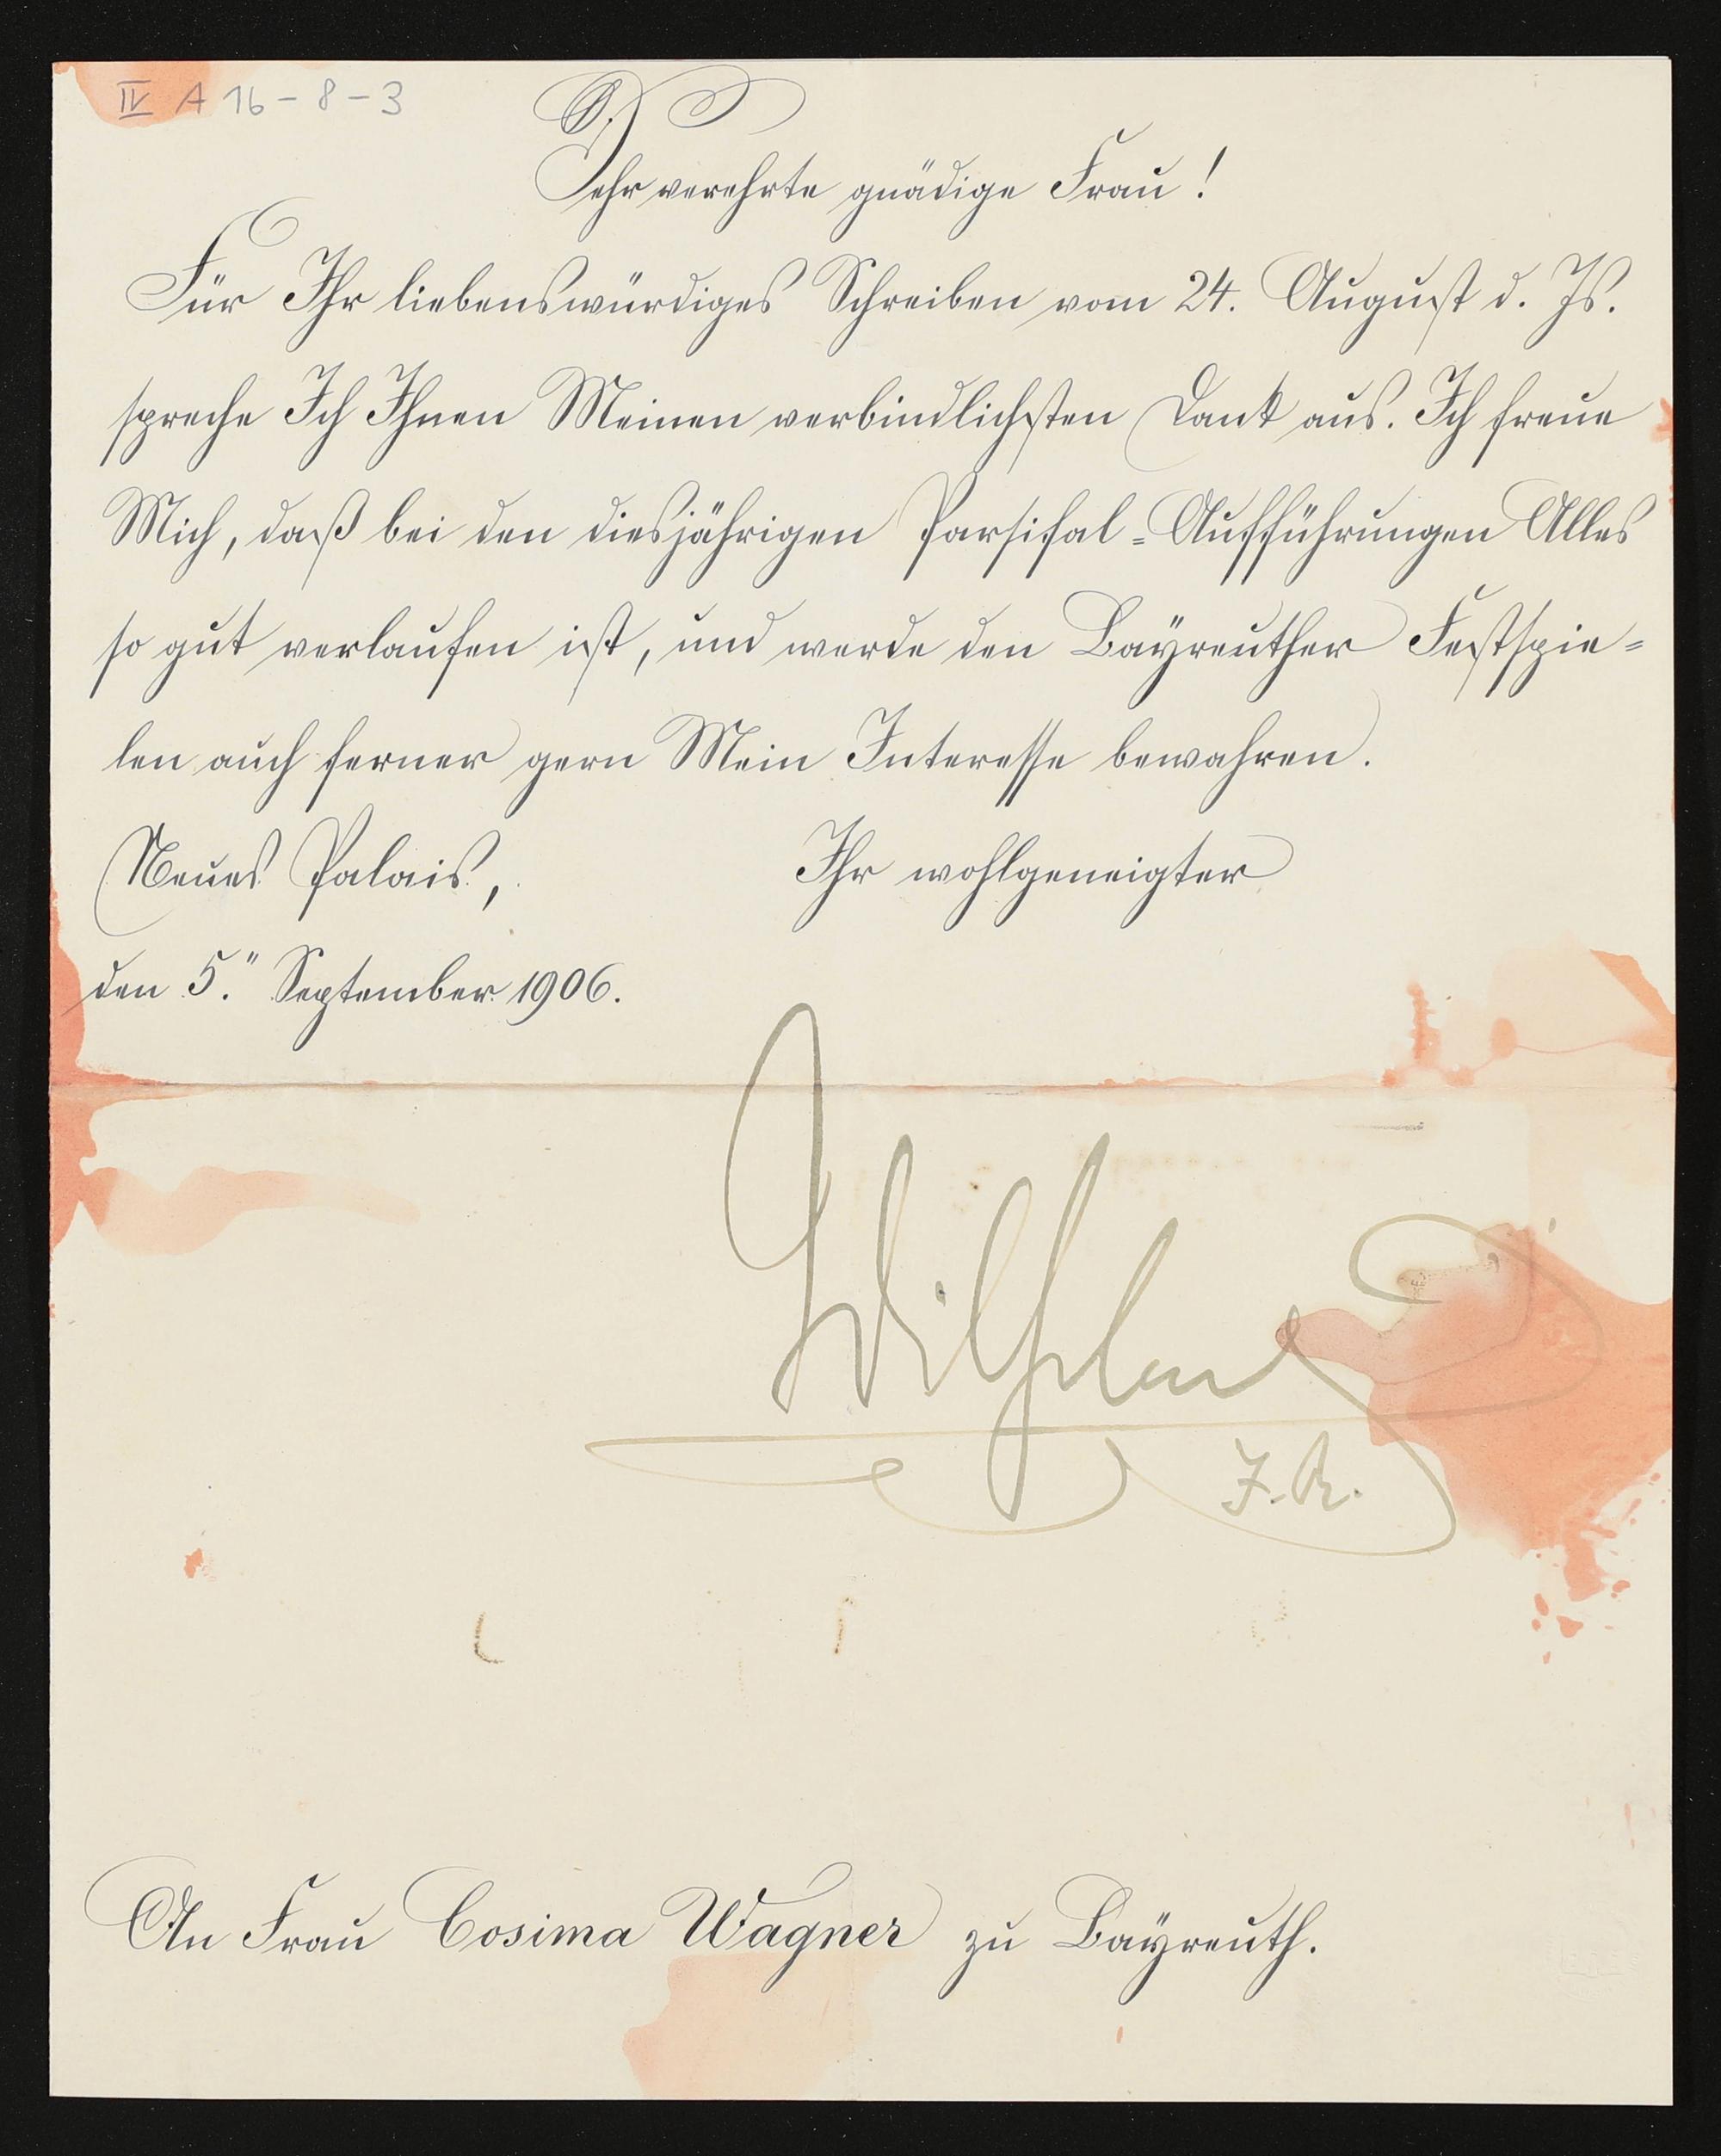 IV A 16-8-3
Sehr verehrte gnädige Frau!
Für Ihr liebenswürdiges Schreiben vom 24. August d. Js.
spreche Ich Ihnen Meinen verbindlichsten Dank aus. Ich freue
Mich, daß bei den diesjährigen Parsifal-Aufführungen Alles
so gut verlaufen ist, und werde den Bayreuther Festspie-
len auch ferner gern Mein Interesse bewahren.
Neues Palais,
Ihr wohlgeneigter
den 5. September 1906.
Wilhelm
I.R.
An Frau Cosima Wagner zu Bayreuth.